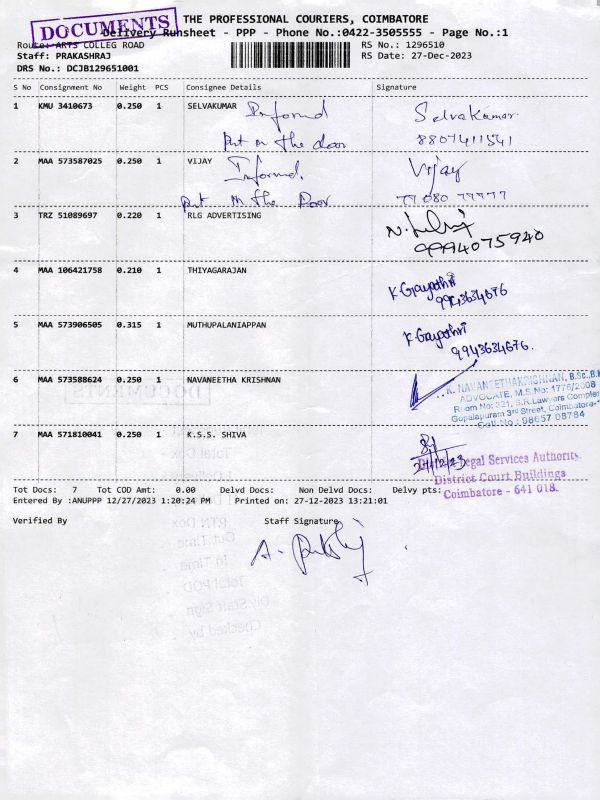 DOCUMENTS
THE PROFESSIONAL COURIERS, COIMBATORE
Delivery Runsheet - PPP - Phone No.:0422-3505555 - Page No.:1
Route: ARTS COLLEG ROAD
RS No.: 1296510
Staff: PRAKASHRAJ
RS Date: 27-Dec-2023
DRS No.: DCJB129651001
S No Consignment No Weight PCS Consignee Details Signature
1 KMU 3410673 0.250 1 SELVAKUMAR Informed Selvakumar
put in the door 8807411541
2 MAA 573587025 0.250 1 VIJAY Informed. Vijay
put in the Door
3 TRZ 51089697 0.220 1 RLG ADVERTISING
9994075940
4 MAA 106421758 0.210 1 THIYAGARAJAN K Gayathri
9943634676
5 MAA 573906505 0.315 1 MUTHUPALANIAPPAN K Gayathri
9943634676.
6 MAA 573588624 0.250 1 NAVANEETHA KRISHNAN
K. NAVANEETHAKRISHNAN, B.Sc.,
ADVOCATE, M.S.No: 1776/2008
Room No: 321, S.R.Lawyers Complex
Gopalapuram 3rd Street, Coimbatore-
Cell No : 98657 08784
7 MAA 571810041 0.250 1 K.S.S. SHIVA
27/12/23
Legal Services Authority
District Court Buildings
Coimbatore - 641 018.
Tot Docs: 7 Tot COD Amt: 0.00 Delvd Docs: Non Delvd Docs: Delvy pts:
Entered By :ANUPPP 12/27/2023 1:20:24 PM Printed on: 27-12-2023 13:21:01
Verified By Staff Signature